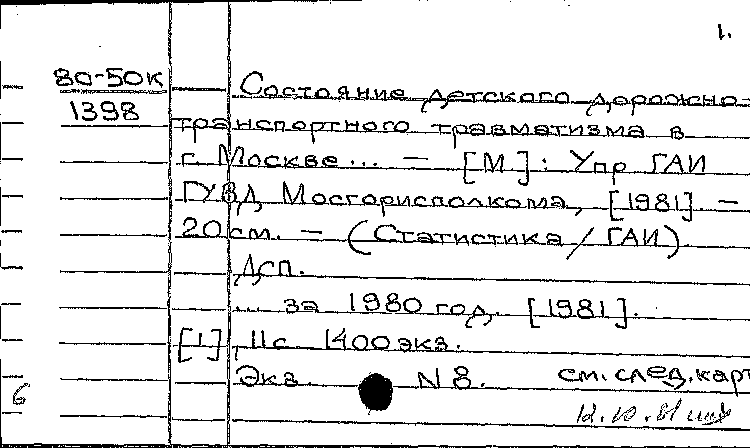 1.
80-50К Состояние детского дорожно-
1398 транспортного травматизма в
г. Москве... — [М]: Упр ГАИ
ГУВД Мосгорисполкома, [1981]. —
20 см. — (Статистика / ГАИ).
Дсп.
... за 1980 год. [1981].
[1], 11с 1400 экз.
Экз. N 8. см. след. карт
6
12.10.81